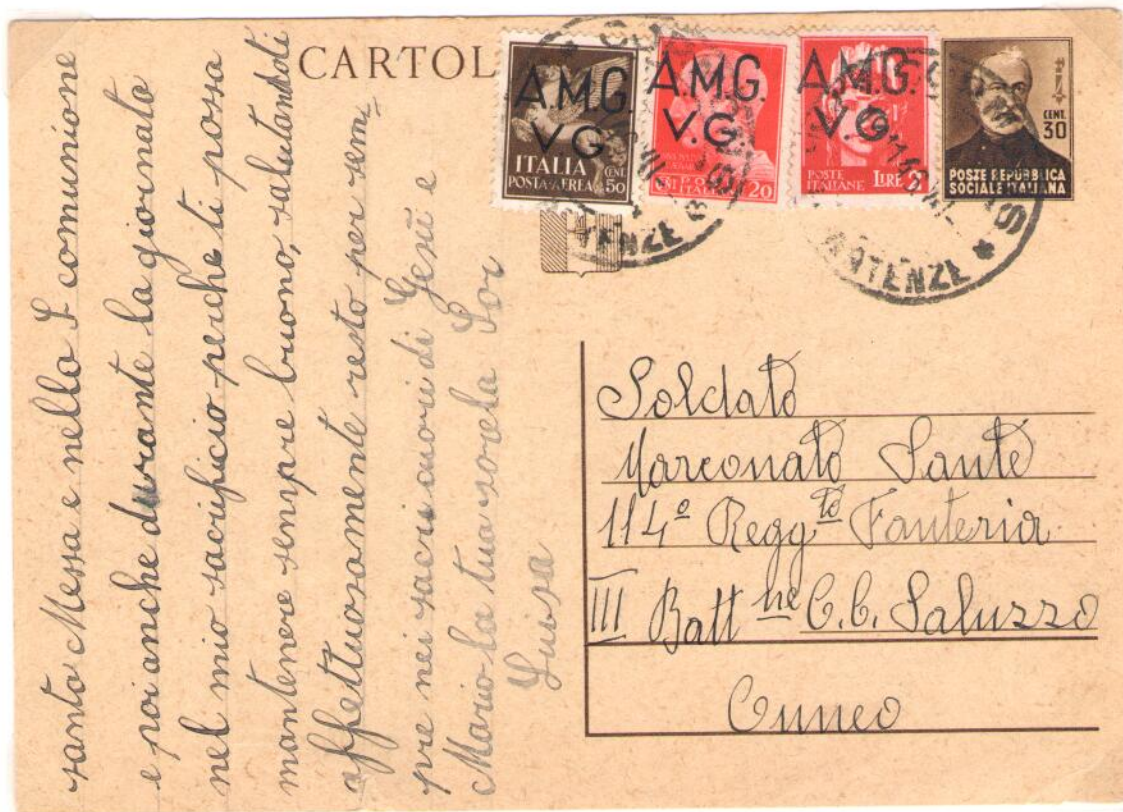 CARTOL
A.M.G.
V.G
ITALIA
POSTA AEREA CENT 50
A.M.G.
V.G.
20
A.M.G.
V.G.
POSTE
ITALIANE LIRE
CENT.
30
POSTE REPUBBLICA
SOCIALE ITALIANA
PARTENZE
santa Messa e nella S comunione
e poi anche durante la giornata
nel mio sacrificio perche ti possa
mantenere sempre buono, salutandoti
affettuosamente resto per sem=
pre nei sacri cuori di Gesù e
Maria la tua sorela Sor
Luisa
Soldato
Marconato Sante
114º Regg.to Fanteria
III Batt ne C.C. Saluzzo
Cuneo